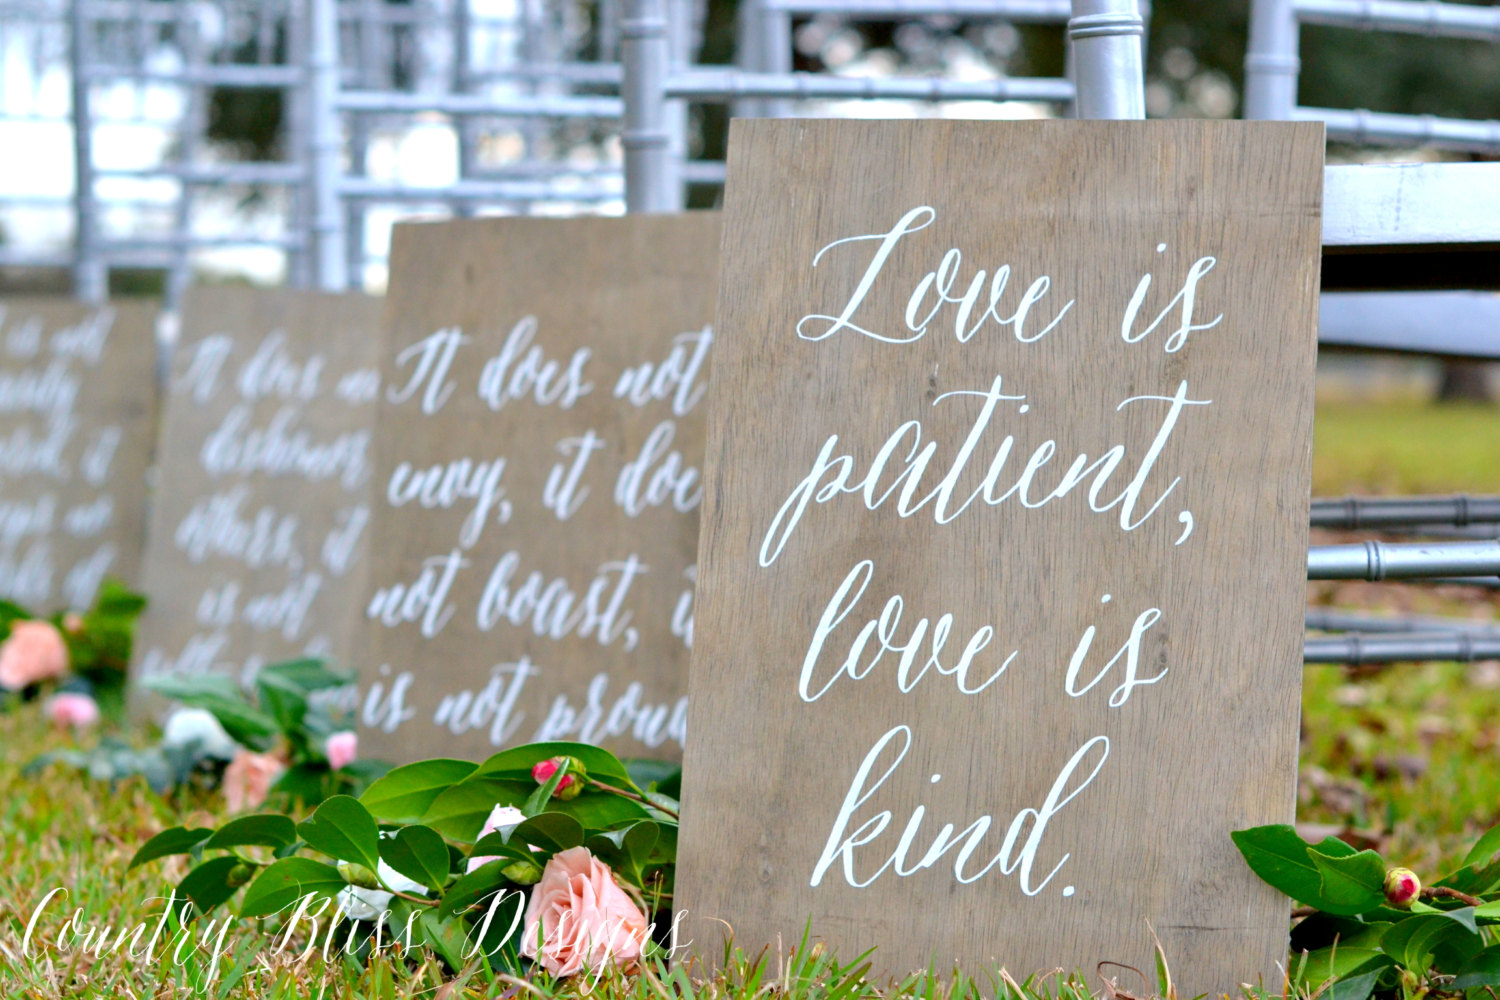 Love is
patient,
love is
kind.
It does not
envy, it doe
not boast, i
is not proud
It does no
dishonor
others, it
is not
is not
it
Country Bliss Designs